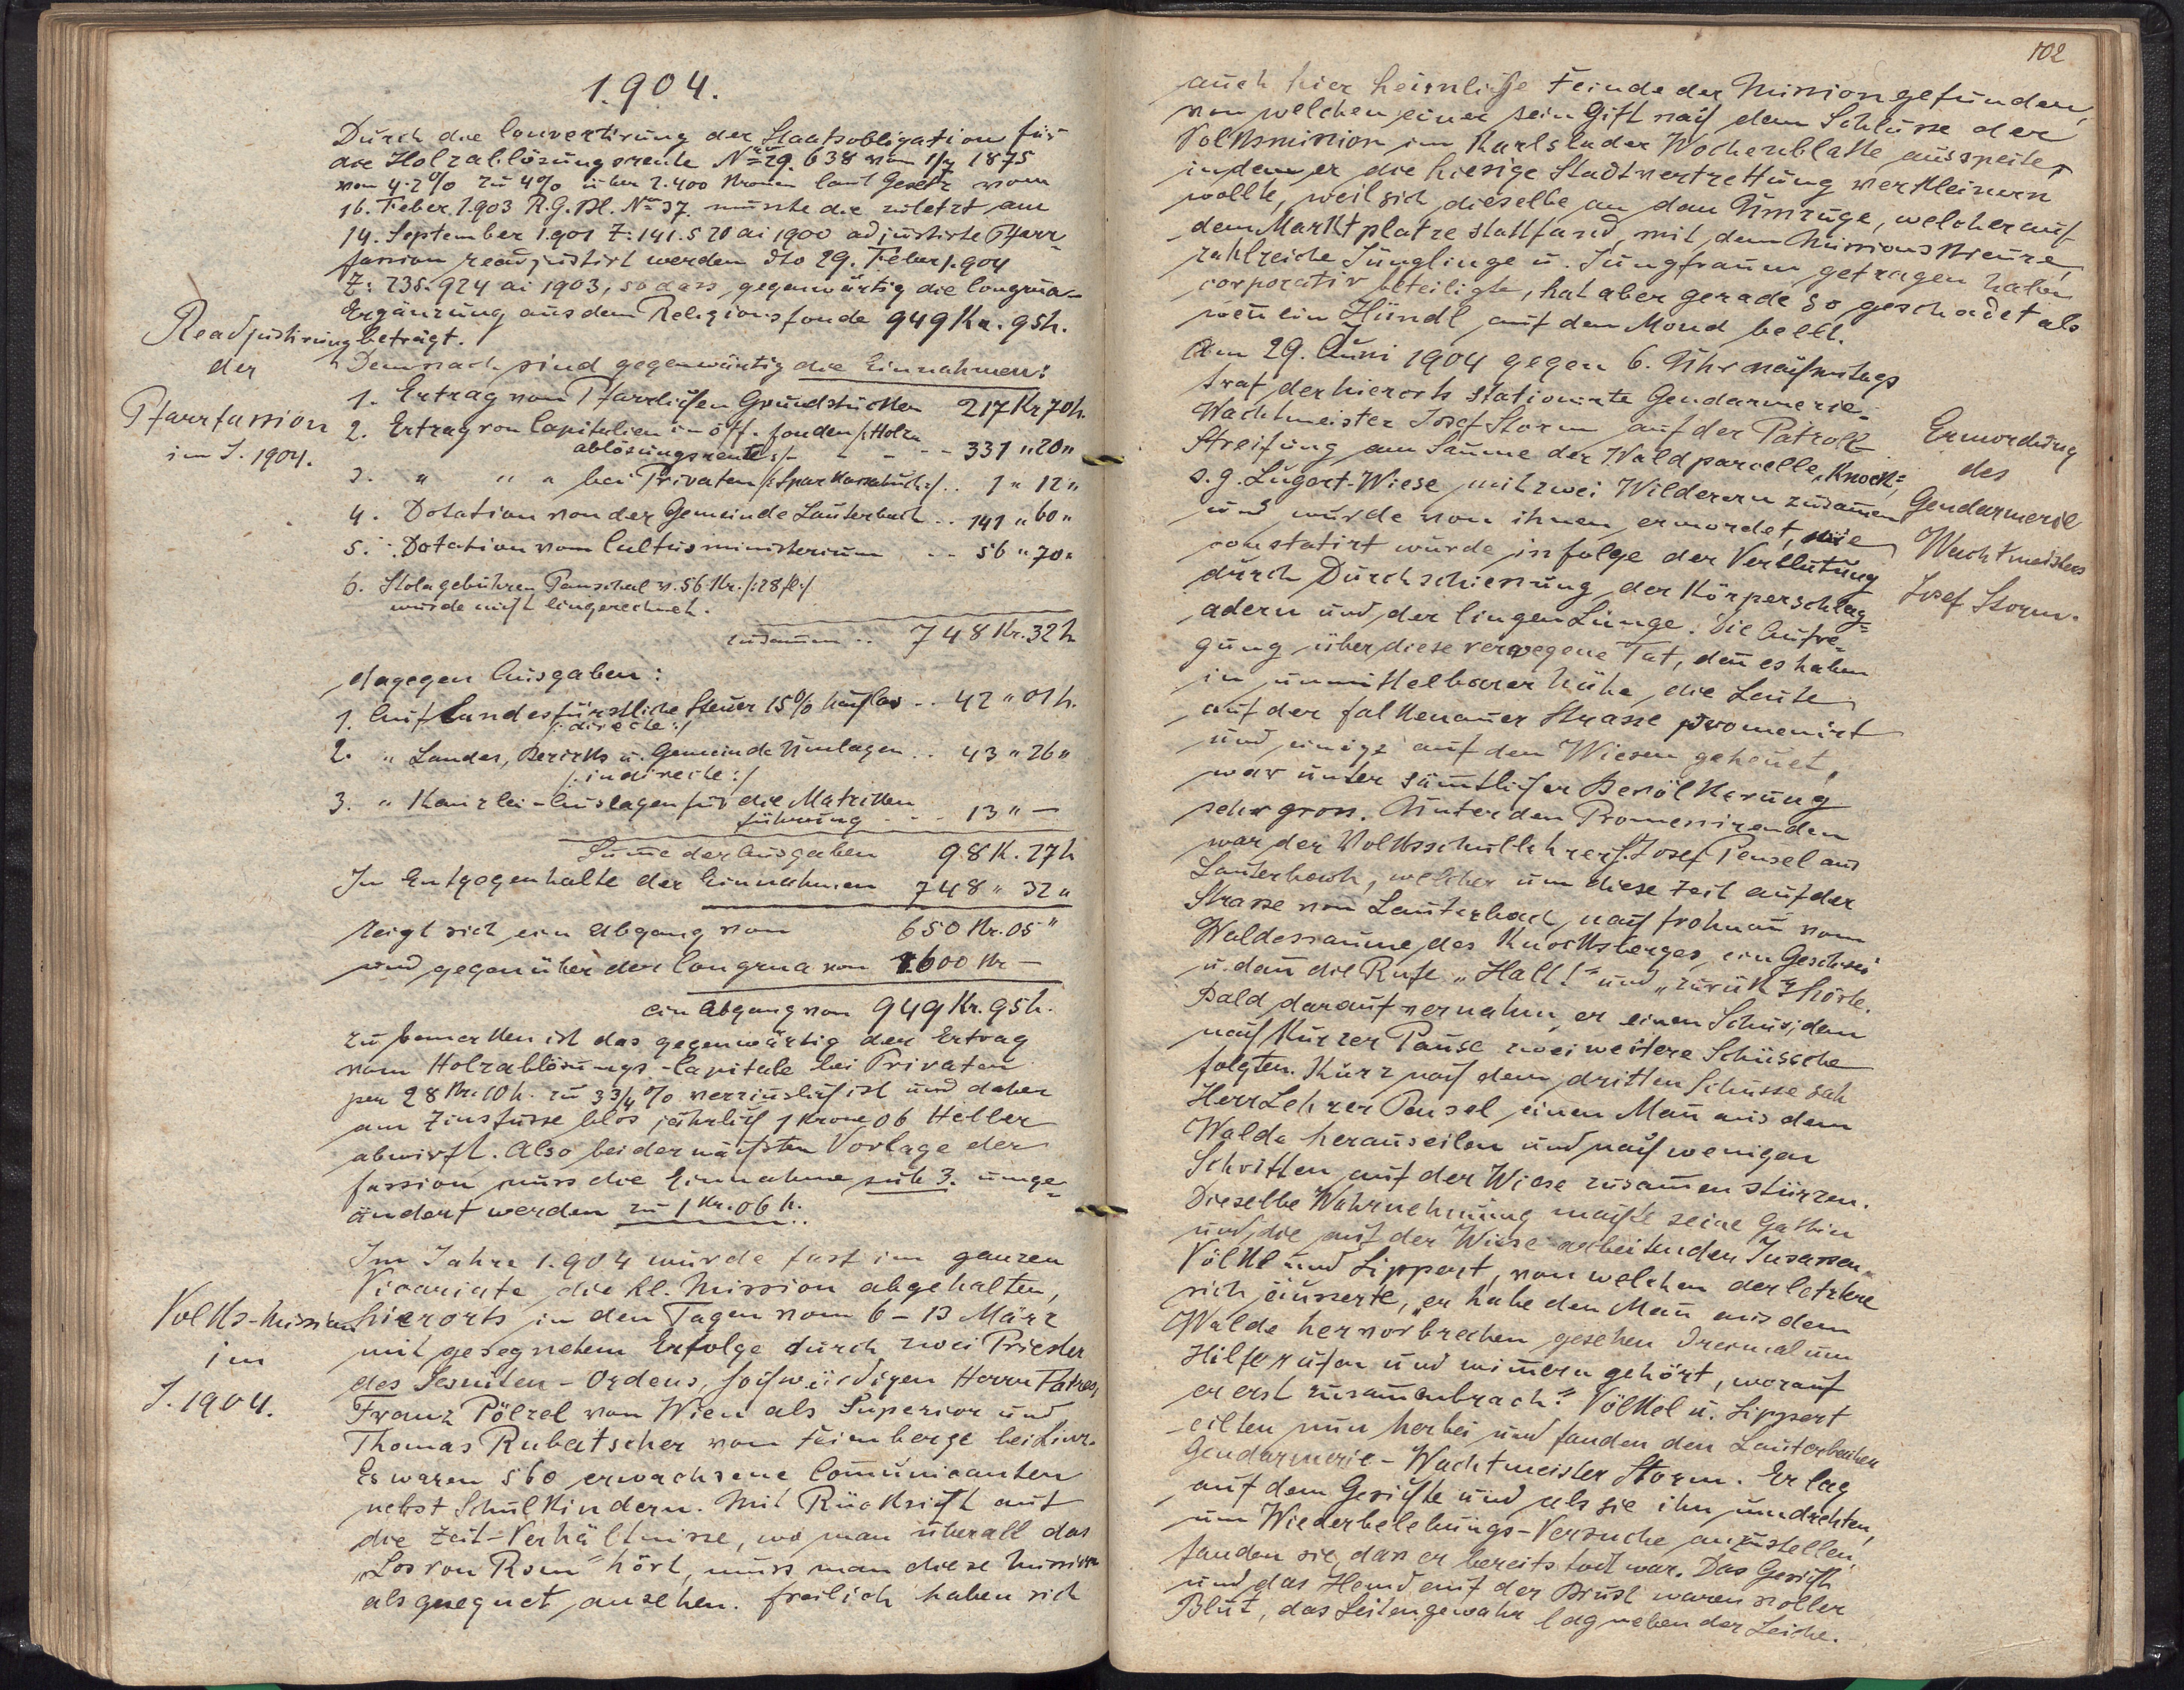 1.904.
Durch die Convertirung der Staatsobligation für
die Holzablösungsrente No 29.638 vom 1/7 1875
von 4·2% zu 4% über 2.400 Kronen laut Gesetz vom
16. Feber 1.903 R.G.Bl. No 37 musste die zuletzt am
14. September 1.901 Z: 141.520 ai 1900 adjustirte Pfarr-
fassion readjustirt werden dto 29. Feber 1.904
Z: 235.924 ai 1903, so dass gegenwärtig die Congrua-
Ergänzung aus dem Religionsfonde 949 Kr. 95h.
beträgt.
Readjustirung
der
Pfarrfassion
im J. 1904.
Demnach sind gegenwärtig die Einnahmen:
1. Ertrag vom Pfarrlichen Grundstücken 217 Kr 70h.
2. Ertrag von Capitalien in öff. Fonden /:Holz-
ablösungsrente:/ - - - 331 " 20 "
3. " " " bei Privaten /:Sparkassabuch:/ .. 1 " 12 "
4. Dotation von der Gemeinde Lauterbach .. 141 " 60 "
5. Dotation vom Cultusministerium .. 56 " 70 "
6. Stolagebühren Pauschal v. 56 Kr. /:28 fl:/
wurde nicht eingerechnet.
zusam̄en .. 748 Kr. 32 h
dagegen Ausgaben:
1. Auf Landesfürstliche Steuer 15% Nachlas .. 42 " 01 h.
/:directe:/
2. " Landes, Bezirks u. Gemeinde Umlagen .. 43 " 26 "
/:indirecte:/
3. " Kanzlei-Auslagen für die Matriken
führung - - - 13 " —
Sum̄e der Ausgaben 98 K. 27 h
In Entgegenhalte der Einnahmen 748 " 32 "
zeigt sich ein Abgang von 650 Kr. 05 "
und gegenüber der Congrua von 1.600 Kr —
ein Abgang von 949 Kr. 95 h.
zu bemerken ist das gegenwärtig der Ertrag
vom Holzablösungs-Capitale bei Privaten
per 28 Kr. 10 h. zu 3 3/4 % verzinslich ist und daher
am Zinsfusse blos jährlich 1 Krone 06 Heller
abwirft. Also bei der nächsten Vorlage der
Fassion muss die Einnahme sub 3. umge-
ändert werden zu 1 Kr. 06 h.
Im Jahre 1.904 wurde fast im ganzen
Vicariate die hl. Mission abgehalten,
hierorts in den Tagen vom 6 – 13 März
mit gesegnetem Erfolge durch zwei Priester
des Jesuiten-Ordens, hochwürdigen Herrn Patres,
Franz Pölzel von Wien als Superior und
Thomas Rubatscher vom Freinberge bei Linz.
Es waren 560 erwachsene Com̄unicanten
nebst Schulkindern. Mit Rücksicht auf
die Zeit-Verhältnisse, wo man überall das
"Los von Rom" hört, muss man diese Mission
als gesegnet ansehen. Freilich haben sich
Volks-Mission
im
J. 1904.
102
auch hier heimliche Feinde der Mission gefunden,
von welchen einer sein Gift nach dem Schlusse der
Volksmission im Karlsbader Wochenblatte ausspeite,
indem er die hiesige Stadtvertrettung verkleinern
wollte, weil sich dieselbe an dem Umzuge, welcher auf
dem Marktplatze stattfand, mit dem Missionskreuze,
zahlreiche Jünglinge u. Jungfrauen getragen haben
corporativ beteiligte, hat aber gerade so geschadet als
weñ ein Hündl auf den Mond bellt.
Am 29. Juni 1904 gegen 6. Uhr nachmittags
traf der hierorts stationirte Gendarmerie-
Wachtmeister Josef Storm auf der Patroll-
Streifung am Saume der Waldparcelle "Knock",
s.g. Lugert-Wiese mit zwei Wilderern zusam̄en
und wurde von ihnen ermordet, wie
constatirt wurde infolge der Verblutung
durch Durchschiessung der Körperschlag-
adern und der lingen Lunge. Die Aufre-
gung über diese verwegene Tat, deñ es haben
in unmittelbarer Nähe die Leute
auf der Falkenauer Strasse promenirt
und einige auf den Wiesen geheuet,
war unter säm̄tlicher Bevölkerung
sehr gross. Unter den Promenirenden
war der Volksschullehrer H. Josef Pensel aus
Lauterbach, welcher um diese Zeit auf der
Strasse von Lauterbach nach Frohnau vom
Waldessaume des Knocksberges ein Geschrei
u. dañ die Rufe "Halt!" und "zurük" hörte.
Bald darauf vernahm er einen Schus, dem
nach kurzer Pause zwei weitere Schüsse
folgten. Kurz nach dem dritten Schusse sah
Herr Lehrer Pensel einen Mañ aus dem
Walde herauseilen und nach wenigen
Schritten auf der Wiese zusam̄en stürzen.
Dieselbe Wahrnehmung machte seine Gattin
und die auf der Wiese arbeitenden Insassen
Völkl und Lippert, von welchen der letztere
sich äusserte, "er habe den Mañ aus dem
Walde hervorbrechen gesehen dreimal um
Hilfe rufen und wim̄ern gehört, worauf
er erst zusam̄enbrach." Völkel u. Lippert
eilten nun herbei und fanden den Lauterbacher
Gendarmerie-Wachtmeister Storm. Er lag
auf dem Gesichte und als sie ihn umdrehten,
um Wiederbelebungs-Versuche anzustellen,
fanden sie, dass er bereits todt war. Das Gesicht
und das Hemd auf der Brust waren voller
Blut, das Seitengewahr lag neben der Leiche.
Ermordung
des
Gendarmerie
Wachtmeisters
Josef Storm.